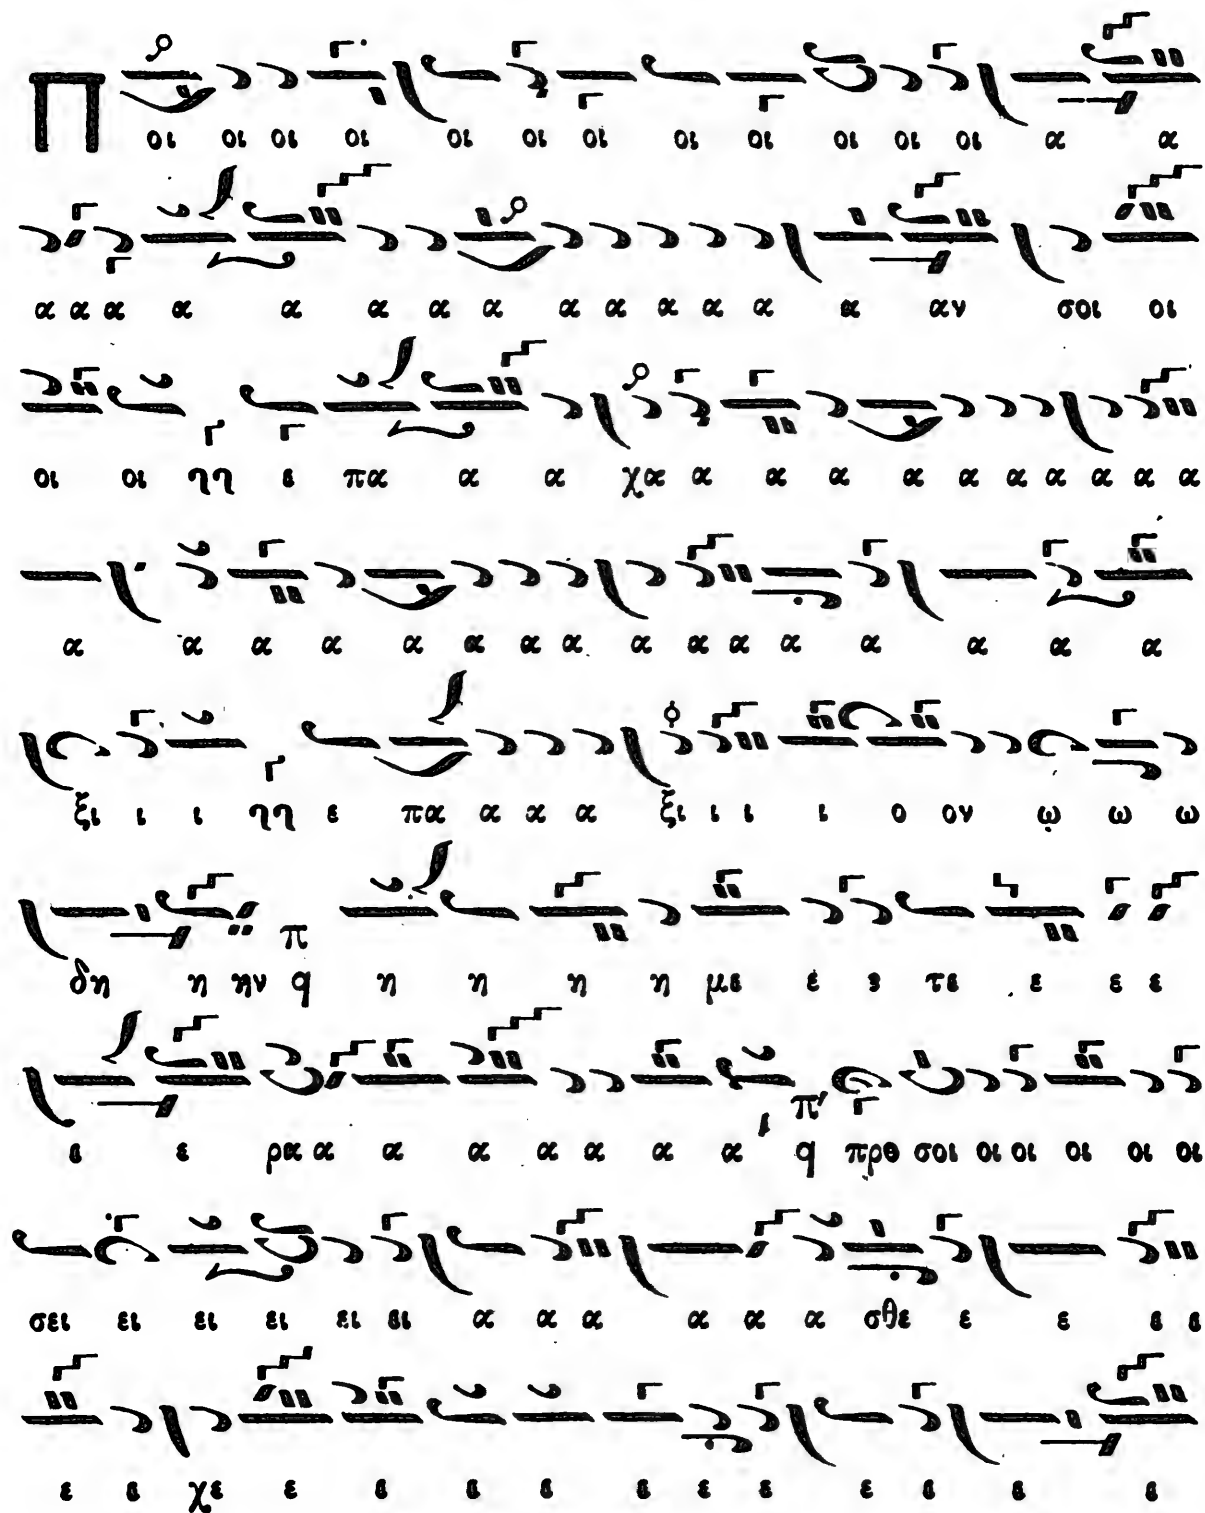 Π οι οι οι οι οι οι οι οι οι οι οι οι α α
α α α α α α α α α α α α α α αν σοι οι
οι οι ηη ε πα α α χα α α α α α α α α α
α α α α α α α α α α α α α α α
ξι ι ι ηη ε πα α α α ξι ι ι ι ο ον ω ω ω
δη η ην π q η η η η με ε ε τε ε ε ε
ε ε ρα α α α α α α α π' q προ σοι οι οι οι οι οι
σει ει ει ει ει ει α α α α α α σθε ε ε ε ε
ε ε χε ε ε ε ε ε ε ε ε ε ε ε